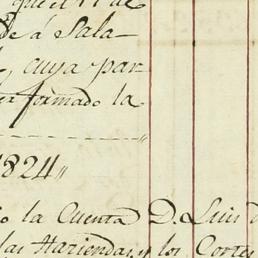 que el 11 de
de á Sala
, cuya par
er formado la
1824,,
o la Cuenta D. Luis d
las Haziendas, y los Cortes